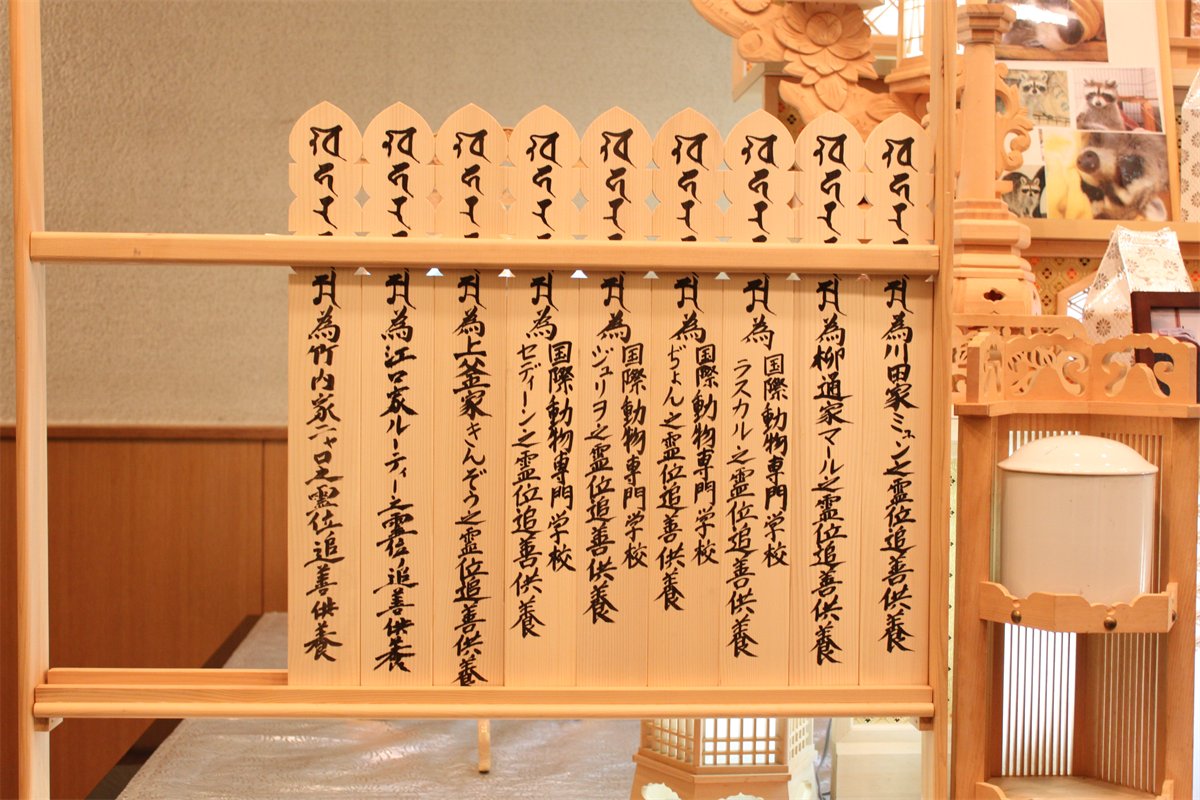 為川田家ミュン之霊位追善供養
為柳通家マール之霊位追善供養
為
国際動物専門学校
ラスカル之霊位追善供養
為
国際動物専門学校
ぢょん之霊位追善供養
為
国際動物専門学校
ジュリヲ之霊位追善供養
為
国際動物専門学校
セディーン之霊位追善供養
為上釜家きんぞう之霊位追善供養
為江口家ルーティー之霊位追善供養
為竹内家ニャロ之霊位追善供養